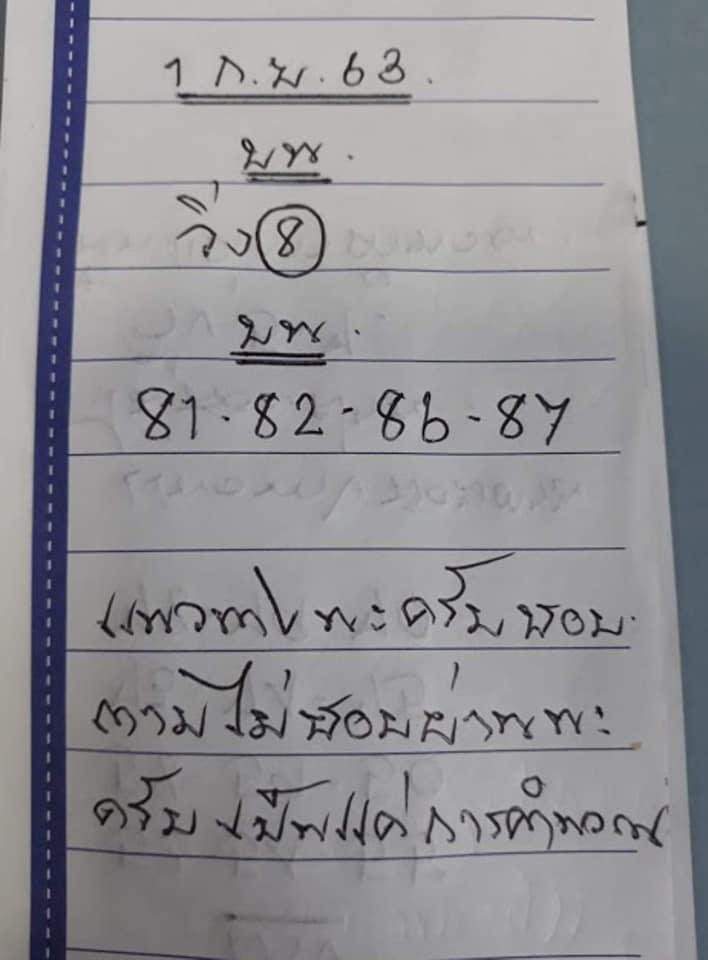 1 ก.ย. 63.
บน.
วิ่ง 8
บน.
81-82-86-87
แนวทางนะครับชอบ
ตามไม่ชอบผ่านนะ
ครับเป็นแค่การคำนวณ